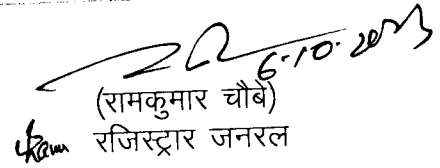 6-10-2023
(रामकुमार चौबे)
रजिस्ट्रार जनरल